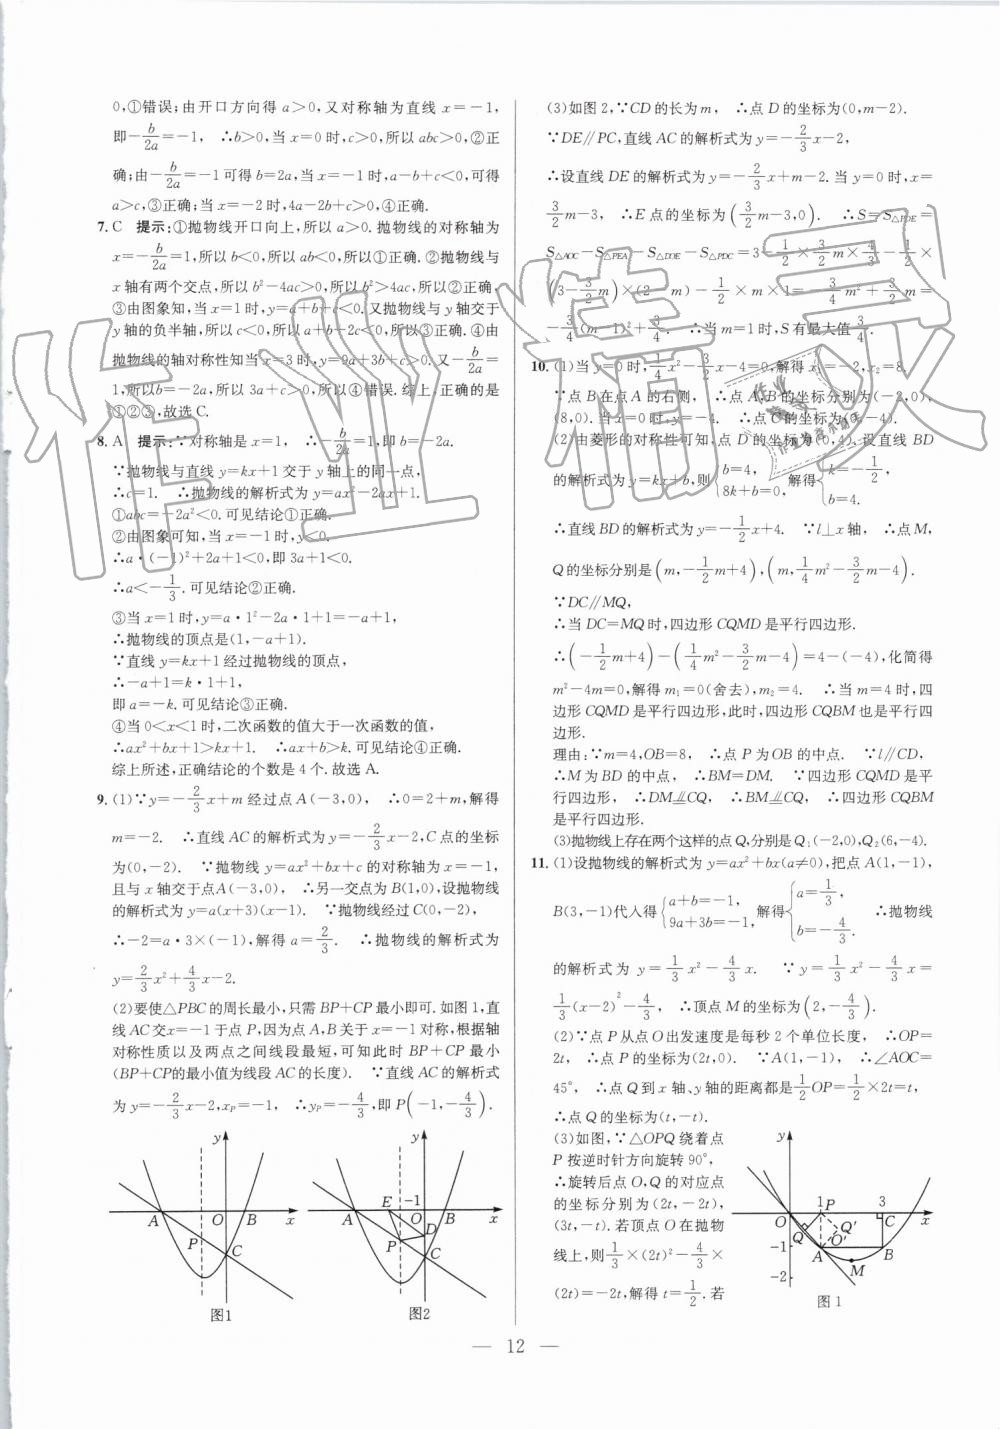 0,①错误;由开口方向得 a>0,又对称轴为直线 x=-1,
即-b/2a=-1, ∴b>0,当 x=0时,c>0,所以 abc>0,②正
确;由-b/2a=-1可得 b=2a,当 x=-1时,a-b+c<0,可得
a>c,③正确;当 x=-2时,4a-2b+c>0,④正确.
7. C 提示:①抛物线开口向上,所以 a>0.抛物线的对称轴为
x=-b/2a=1,所以 b<0,所以 ab<0,所以①正确.②抛物线与
x 轴有两个交点,所以 b²-4ac>0,所以 b²>4ac,所以②正确.
③由图象知,当 x=1时,y<0,a+b+c<0.又抛物线与 y 轴交于
y轴的负半轴,所以 c<0,所以 a+b+2c<0,所以③正确.④由
抛物线的轴对称性知当 x=3时,y=9a+3b+c>0.又-b/2a=
1,所以b=-2a,所以 3a+c>0,所以④错误.综上,正确的是
①②③,故选 C.
8. A 提示:∵对称轴是 x=1, ∴-b/2a=1,即 b=-2a.
∵抛物线与直线 y=kx+1交于 y 轴上的同一点,
∴c=1. ∴抛物线的解析式为 y=ax²-2ax+1.
①abc=-2a²<0.可见结论①正确.
②由图象可知,当 x=-1时,y<0,
∴a·(-1)²+2a+1<0,即 3a+1<0.
∴a<-1/3.可见结论②正确.
③当 x=1时,y=a·1²-2a·1+1=-a+1,
∴抛物线的顶点是(1,-a+1).
∵直线 y=kx+1经过抛物线的顶点,
∴-a+1=k·1+1,
即 a=-k.可见结论③正确.
④当 0<x<1时,二次函数的值大于一次函数的值,
∴ax²+bx+1>kx+1. ∴ax+b>k.可见结论④正确.
综上所述,正确结论的个数是 4 个.故选 A.
9. (1)∵y=-2/3x+m 经过点 A(-3,0), ∴0=2+m,解得
m=-2. ∴直线 AC 的解析式为 y=-2/3x-2,C 点的坐标
为(0,-2). ∵抛物线 y=ax²+bx+c 的对称轴为 x=-1,
且与 x 轴交于点A(-3,0), ∴另一交点为 B(1,0),设抛物线
的解析式为 y=a(x+3)(x-1). ∵抛物线经过 C(0,-2),
∴-2=a·3×(-1),解得 a=2/3. ∴抛物线的解析式为
y=2/3x²+4/3x-2.
(2)要使△PBC 的周长最小,只需 BP+CP 最小即可.如图 1,直
线 AC交 x=-1于点 P,因为点 A,B关于 x=-1对称,根据轴
对称性质以及两点之间线段最短,可知此时 BP+CP 最小
(BP+CP的最小值为线段 AC 的长度). ∵直线 AC 的解析式
为 y=-2/3x-2,xP=-1, ∴yP=-4/3,即 P(-1,-4/3).
y
A O B x
P C
图1
y
E -1
A O B x
P D
C
图2
(3)如图 2,∵CD 的长为 m, ∴点 D 的坐标为(0,m-2).
∵DE∥PC,直线 AC 的解析式为 y=-2/3x-2,
∴设直线 DE 的解析式为 y=-2/3x+m-2.当 y=0时,x=
3/2m-3, ∴E 点的坐标为(3/2m-3,0). ∴S=S△PDE=
S△AOC-S△PEA-S△DOE-S△PDC=3-1/2×3/2m×4/3-1/2×
(3-3/2m)×(2-m)-1/2×m×1=-3/4m²+3/2m=
-3/4(m-1)²+3/4. ∴当 m=1时,S有最大值3/4.
10. (1)当 y=0时,1/4x²-3/2x-4=0,解得 x₁=-2,x₂=8.
∵点 B 在点 A 的右侧, ∴点 A,B 的坐标分别为(-2,0),
(8,0).当 x=0时,y=-4. ∴点 C 的坐标为(0,-4).
(2)由菱形的对称性可知,点 D 的坐标为(0,4).设直线 BD
的解析式为 y=kx+b,则{b=4, 8k+b=0. 解得{k=-1/2, b=4.
∴直线 BD 的解析式为 y=-1/2x+4. ∵l⊥x 轴, ∴点 M,
Q的坐标分别是(m,-1/2m+4),(m,1/4m²-3/2m-4).
∵DC∥MQ,
∴当 DC=MQ 时,四边形 CQMD 是平行四边形.
∴(-1/2m+4)-(1/4m²-3/2m-4)=4-(-4),化简得
m²-4m=0,解得 m₁=0(舍去),m₂=4. ∴当 m=4 时,四
边形 CQMD 是平行四边形,此时,四边形 CQBM 也是平行四
边形.
理由:∵m=4,OB=8, ∴点 P 为OB 的中点. ∵l∥CD,
∴M 为 BD 的中点, ∴BM=DM. ∵四边形 CQMD 是平
行四边形, ∴DM⫽CQ, ∴BM⫽CQ, ∴四边形 CQBM 是
平行四边形.
(3)抛物线上存在两个这样的点 Q,分别是 Q₁(-2,0),Q₂(6,-4).
11. (1)设抛物线的解析式为 y=ax²+bx(a≠0),把点 A(1,-1),
B(3,-1)代入得{a+b=-1, 9a+3b=-1, 解得{a=1/3, b=-4/3. ∴抛物线
的解析式为 y=1/3x²-4/3x. ∵y=1/3x²-4/3x=
1/3(x-2)²-4/3, ∴顶点 M 的坐标为(2,-4/3).
(2)∵点 P从点 O 出发速度是每秒 2 个单位长度, ∴OP=
2t, ∴点 P 的坐标为(2t,0). ∵A(1,-1), ∴∠AOC=
45°, ∴点 Q 到 x 轴、y 轴的距离都是1/2OP=1/2×2t=t,
∴点 Q 的坐标为(t,-t).
(3)如图,∵△OPQ 绕着点
P 按逆时针方向旋转 90°,
∴旋转后点 O,Q 的对应点
的坐标分别为(2t,-2t),
(3t,-t).若顶点 O 在抛物
线上,则1/3×(2t)²-4/3×
(2t)=-2t,解得 t=1/2.若
y
1 3
O P C x
Q Q′
O′
-1 A B
M
-2
图 1
— 12 —
作业精灵